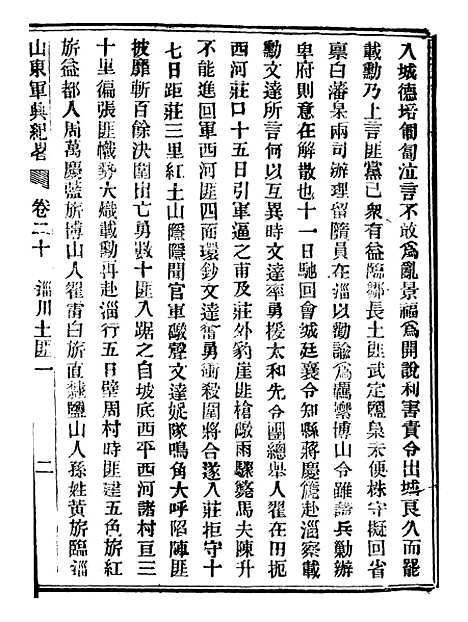 入城德培匍匐泣言不敢為亂景福為開說利害責令出城良久而罷
載勳乃上言匪黨已衆有益臨鄒長土匪武定鹽梟未便株守擬回省
稟白藩臬兩司辦理留隨員在淄以勸諭為羈縻博山令雖請兵勦辦
卑府則意在解散也十一日馳回會城廷襄令知縣蔣慶篪赴淄察載
勳文達所言何以互異時文達率勇援太和先令團總舉人翟在田扼
西河莊口十五日引軍逼之甫及莊外豹崖匪槍礮雨驟斃馬夫陳升
不能進回軍西河匪四面環鈔文達奮勇衝殺圍將合遂入莊拒守十
七日距莊三里紅土山隱隱聞官軍礮聲文達娖隊鳴角大呼陷陣匪
披靡斬百餘決圍出亡勇數十匪入踞之自坡底西平西河諸村亘三
十里徧張匪幟勢大熾載勳再赴淄行五日壁周村時匪建五色旂紅
旂益都人周萬慶藍旂博山人翟雷白旂直隸鹽山人孫姓黃旂臨淄
山東軍興紀畧 卷二十 淄川土匪一 二